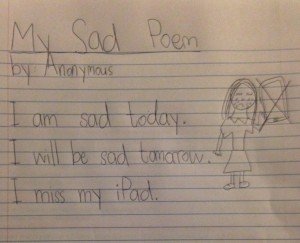 My Sad Poem
by Anonymous
I am sad today.
I will be sad tomorrow.
I miss my iPad.